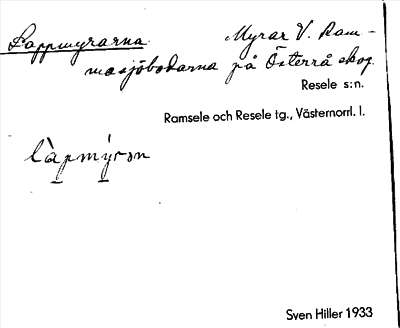 Lappmyrarna Myrar V. Ram-
masjöbodarna på Österrå skog.
Resele s:n.
Ramsele och Resele tg., Västernorrl. l.
Sven Hiller 1933